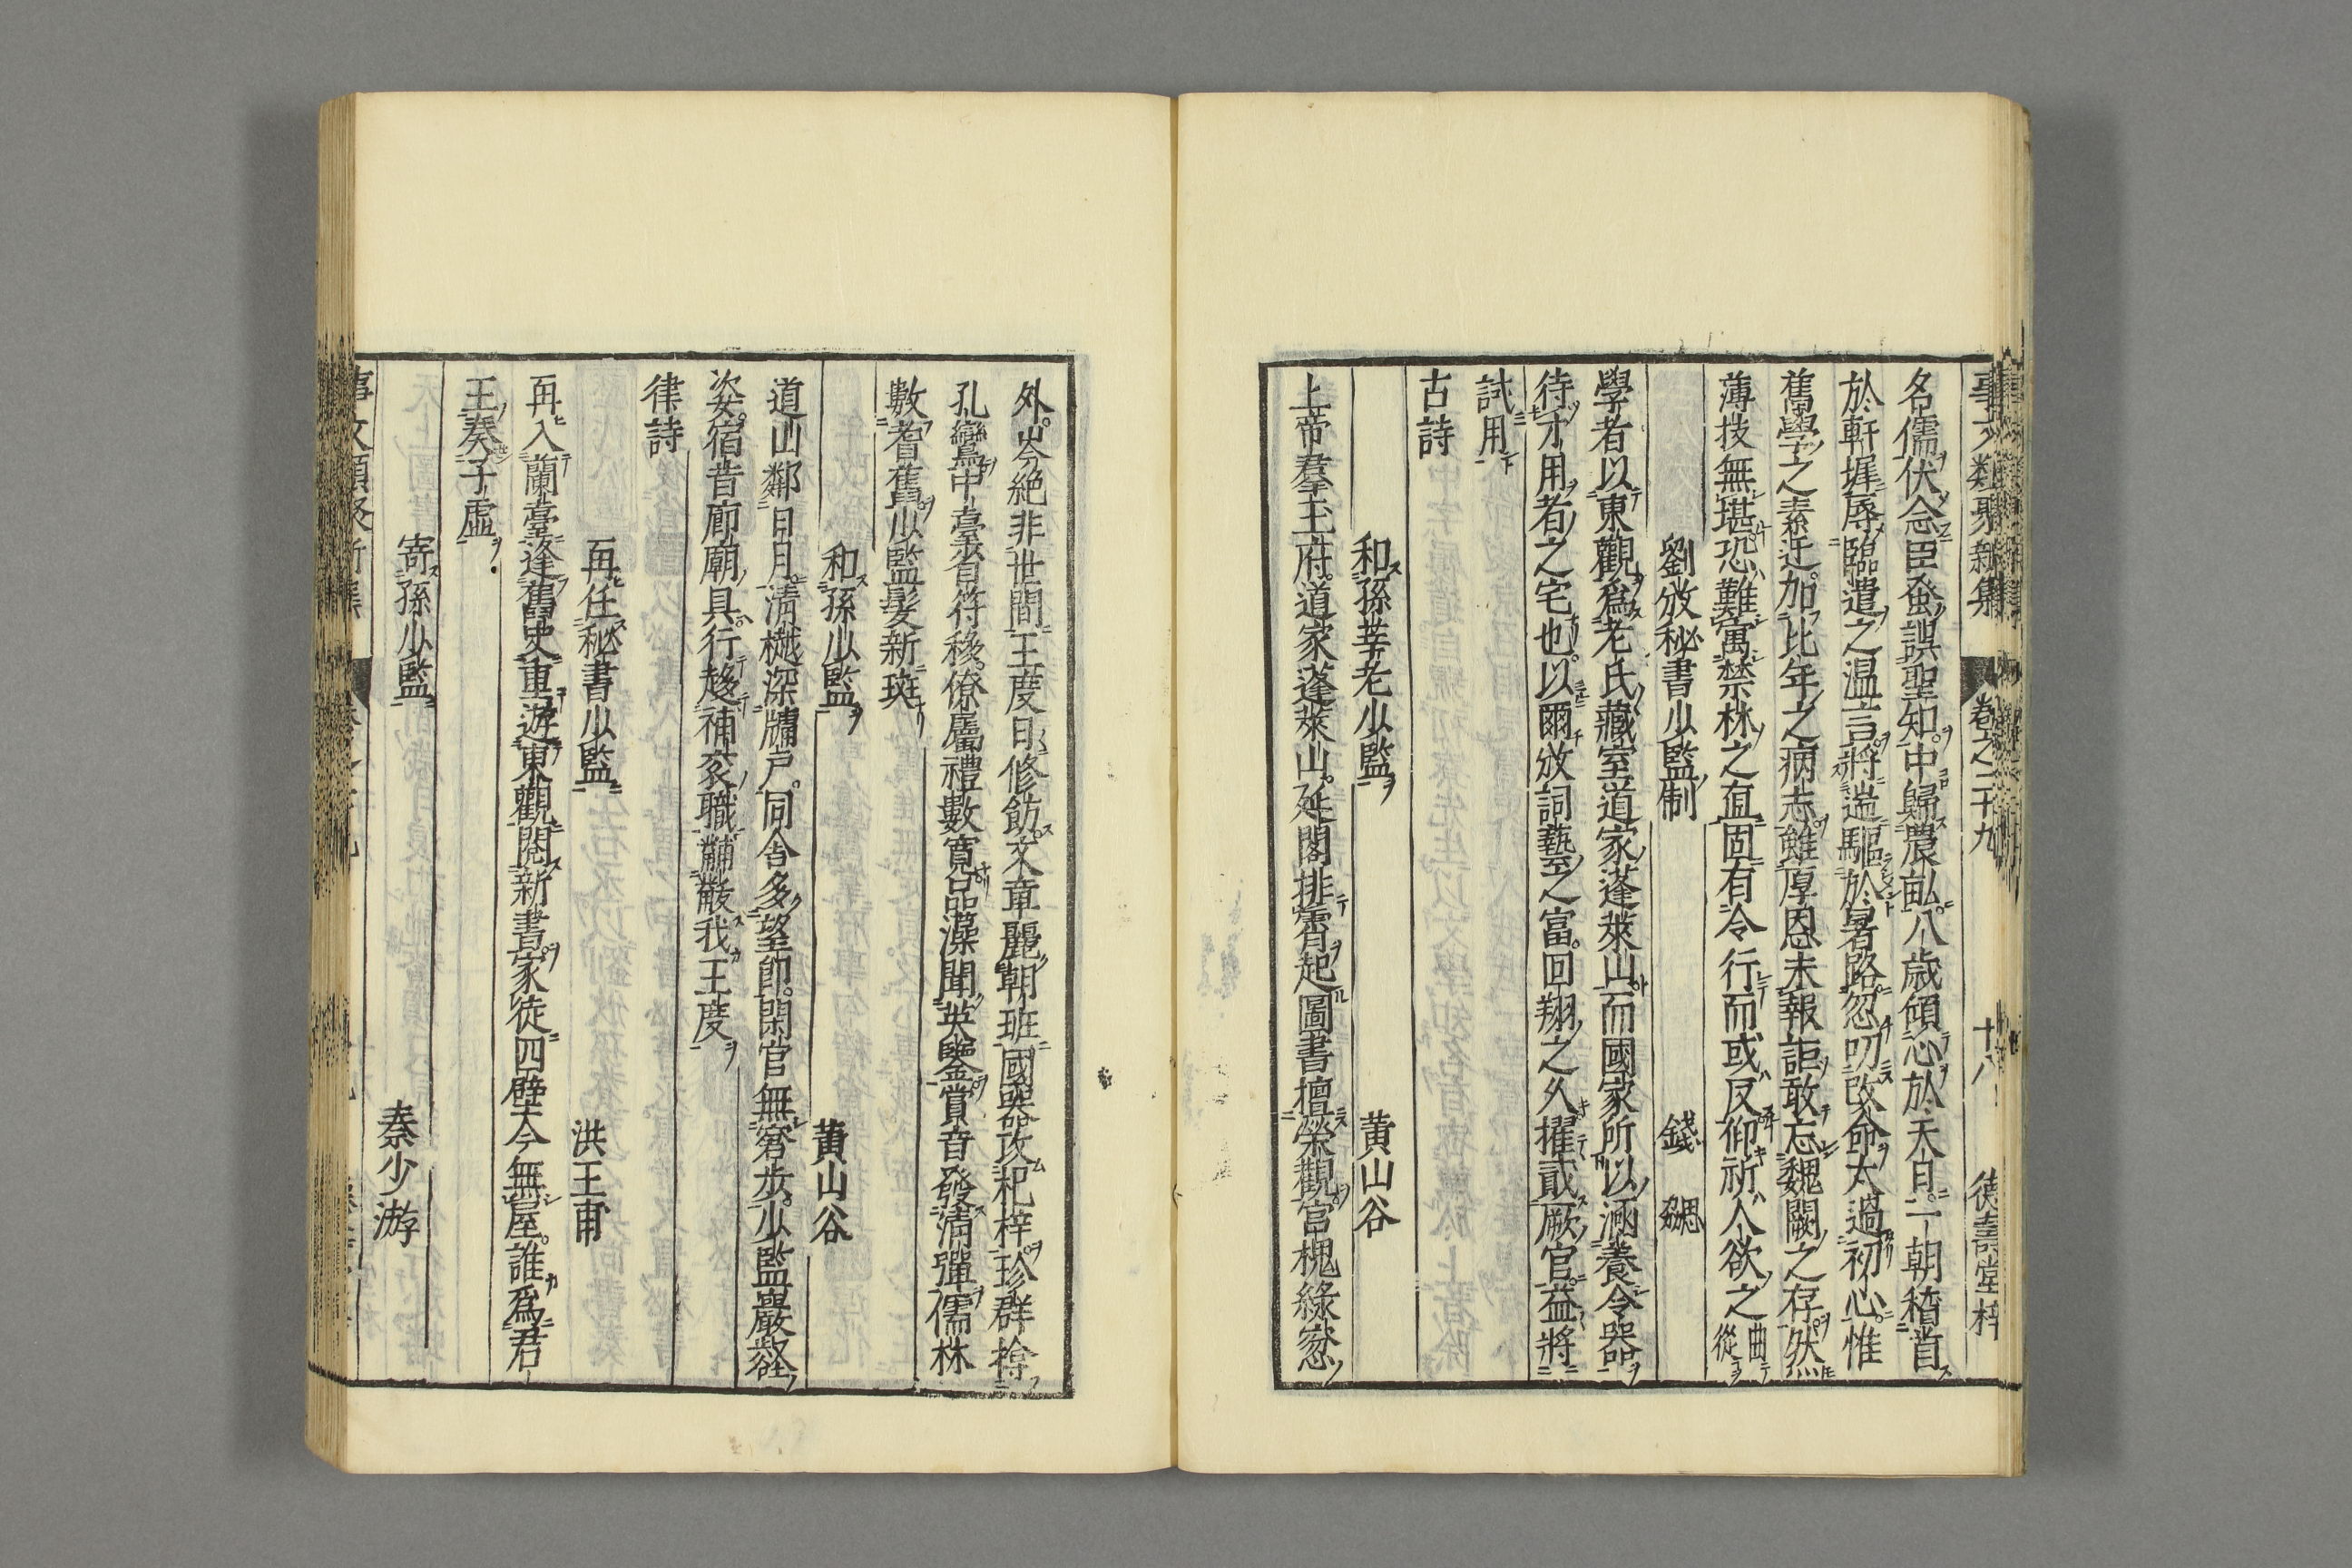 事文類聚新集 卷之二十九 十八 德壽堂梓
名儒伏念臣蚤誤聖知中歸農畝八歲傾心於天日一朝稽首
於軒墀辱臨遣之温言將遄驅於暑路忽叨改命太過初心惟
舊學之素迂加比年之病志雖厚恩未報詎敢忘魏闕之存然
薄技無堪恐難寓禁林之直固有令行而或反仰祈人欲之曲從
劉攽秘書少監制 錢勰
學者以東觀爲老氏藏室道家蓬萊山而國家所以涵養令器
待才用者之宅也以爾攽詞藝之富回翔之久擢貳厥官益將
試用
古詩
和孫莘老少監 黄山谷
上帝羣玉府道家蓬萊山延閣排霄起圖書擅榮觀宫槐緑窓
外岑絶非世間王度日修飭文章麗朝班國器攻杞梓珍群捨
孔鸞中臺皆符移僚屬禮數寛品藻聞英鑒賞音發清彈儒林
數耆舊少監髮新斑
和孫少監 黄山谷
道山鄰日月清樾深牖戸同舍多望郎閑官無窘步少監巖壑
姿宿昔廊廟具行趍補衮職黼黻我王度
律詩
再任秘書少監 洪王甫
再入蘭臺逢舊史重遊東觀閲新書家徒四壁今無屋誰爲君
王奏子虚
寄孫少監 秦少游
事文類聚新集